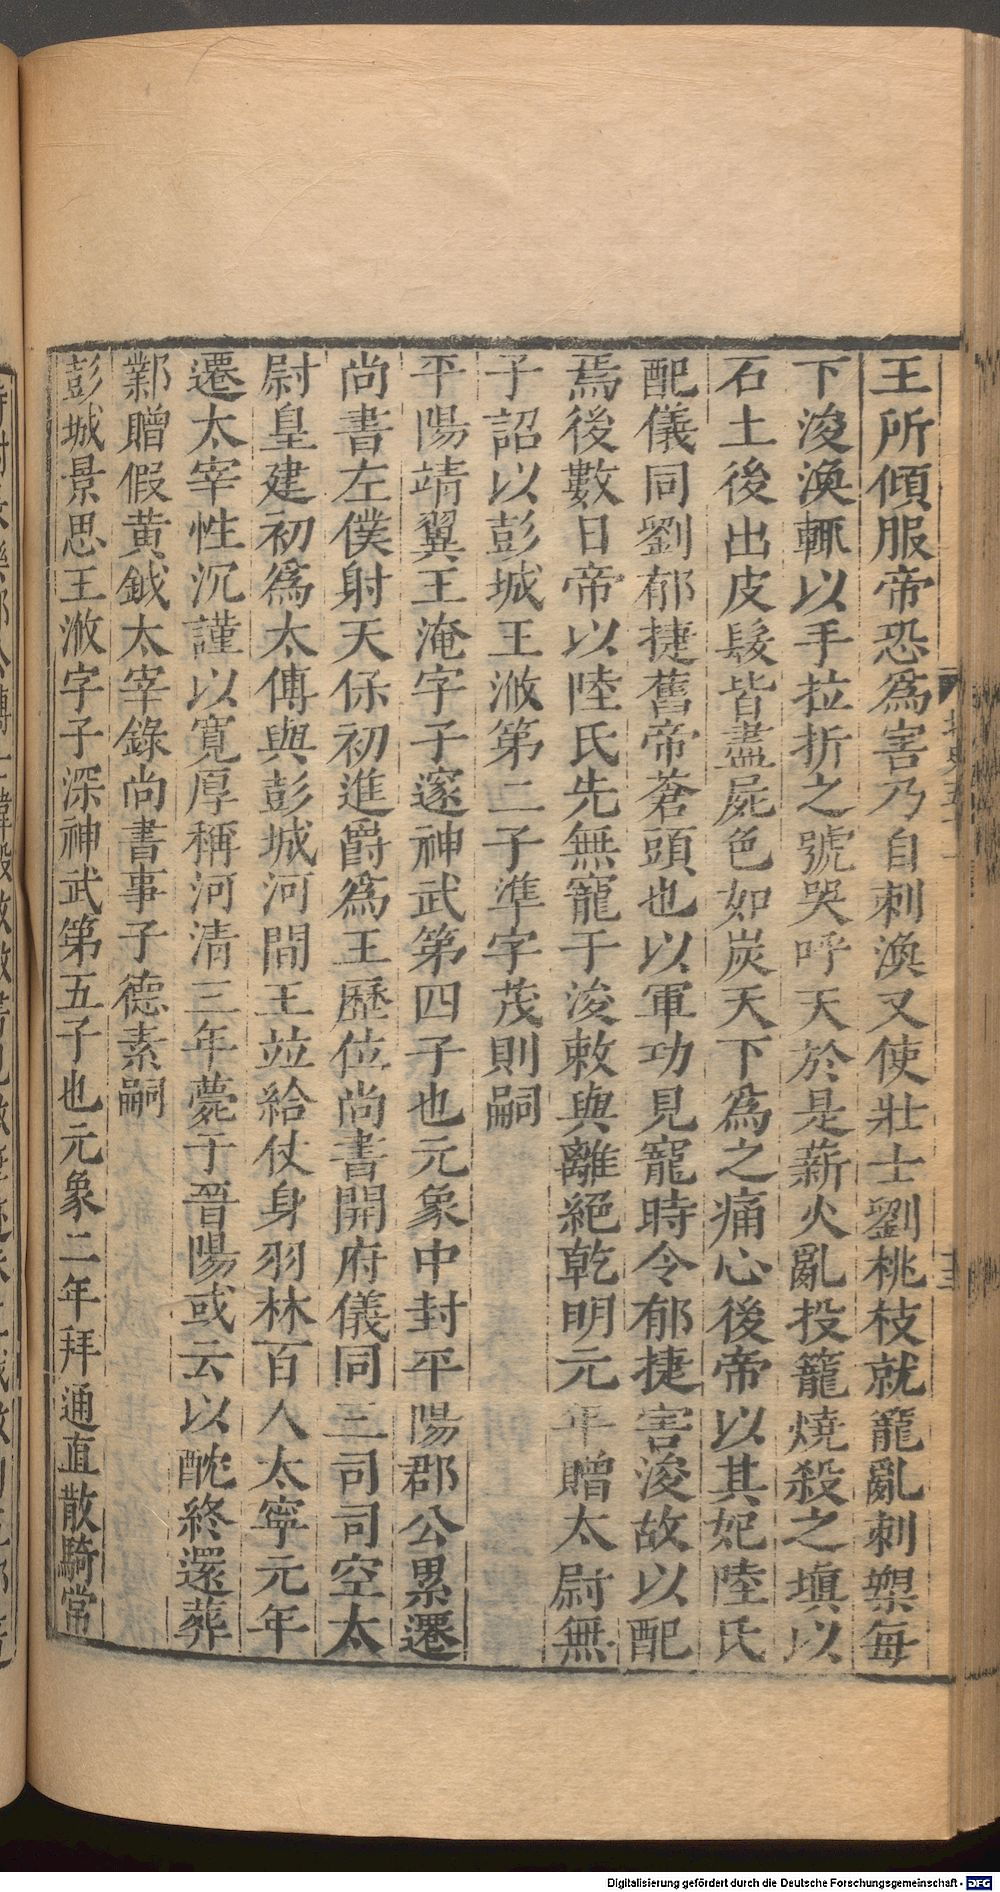 王所傾服帝恐爲害乃自刺渙又使壯士劉桃枝就籠亂刺槊每
下浚渙輒以手拉折之號哭呼天於是薪火亂投籠燒殺之塡以
石土後出皮髮皆盡屍色如炭天下爲之痛心後帝以其妃陸氏
配儀同劉郁捷舊帝蒼頭也以軍功見寵時令郁捷害浚故以配
焉後數日帝以陸氏先無寵于浚敕與離絕乾明元年贈太尉無
子詔以彭城王浟第二子準字茂則嗣
平陽靖翼王淹字子邃神武第四子也元象中封平陽郡公累遷
尚書左僕射天保初進爵爲王歷位尚書開府儀同三司司空太
尉皇建初爲太傅與彭城河間王竝給仗身羽林百人太寧元年
遷太宰性沉謹以寬厚稱河清三年薨于晉陽或云以酖終還葬
鄴贈假黃鉞太宰錄尚書事子德素嗣
彭城景思王浟字子深神武第五子也元象二年拜通直散騎常
十三
Digitalisierung gefördert durch die Deutsche Forschungsgemeinschaft - DFG